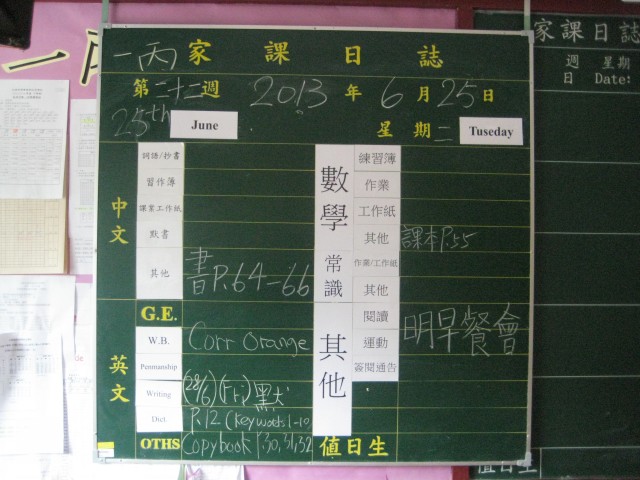 一丙 家課日誌
第二十二週 2013年6月25日
25th June 星期二 Tuseday
中文
詞語/抄書
習作簿
課業工作紙
默書
其他 書P.64-66
數學
練習簿
作業
工作紙
其他 課本P.55
常識
作業/工作紙
其他
英文
G.E.
W.B. Corr Orange
Penmanship
Writing (28/6)(Fri)默
Dict. P.12 (Key words 1-10)
OTHS Copybook 30,31,32
其他
閱讀 明早餐會
運動
簽閱通告
值日生
一丙
家課日誌
週 星期
日 Date:
值日生